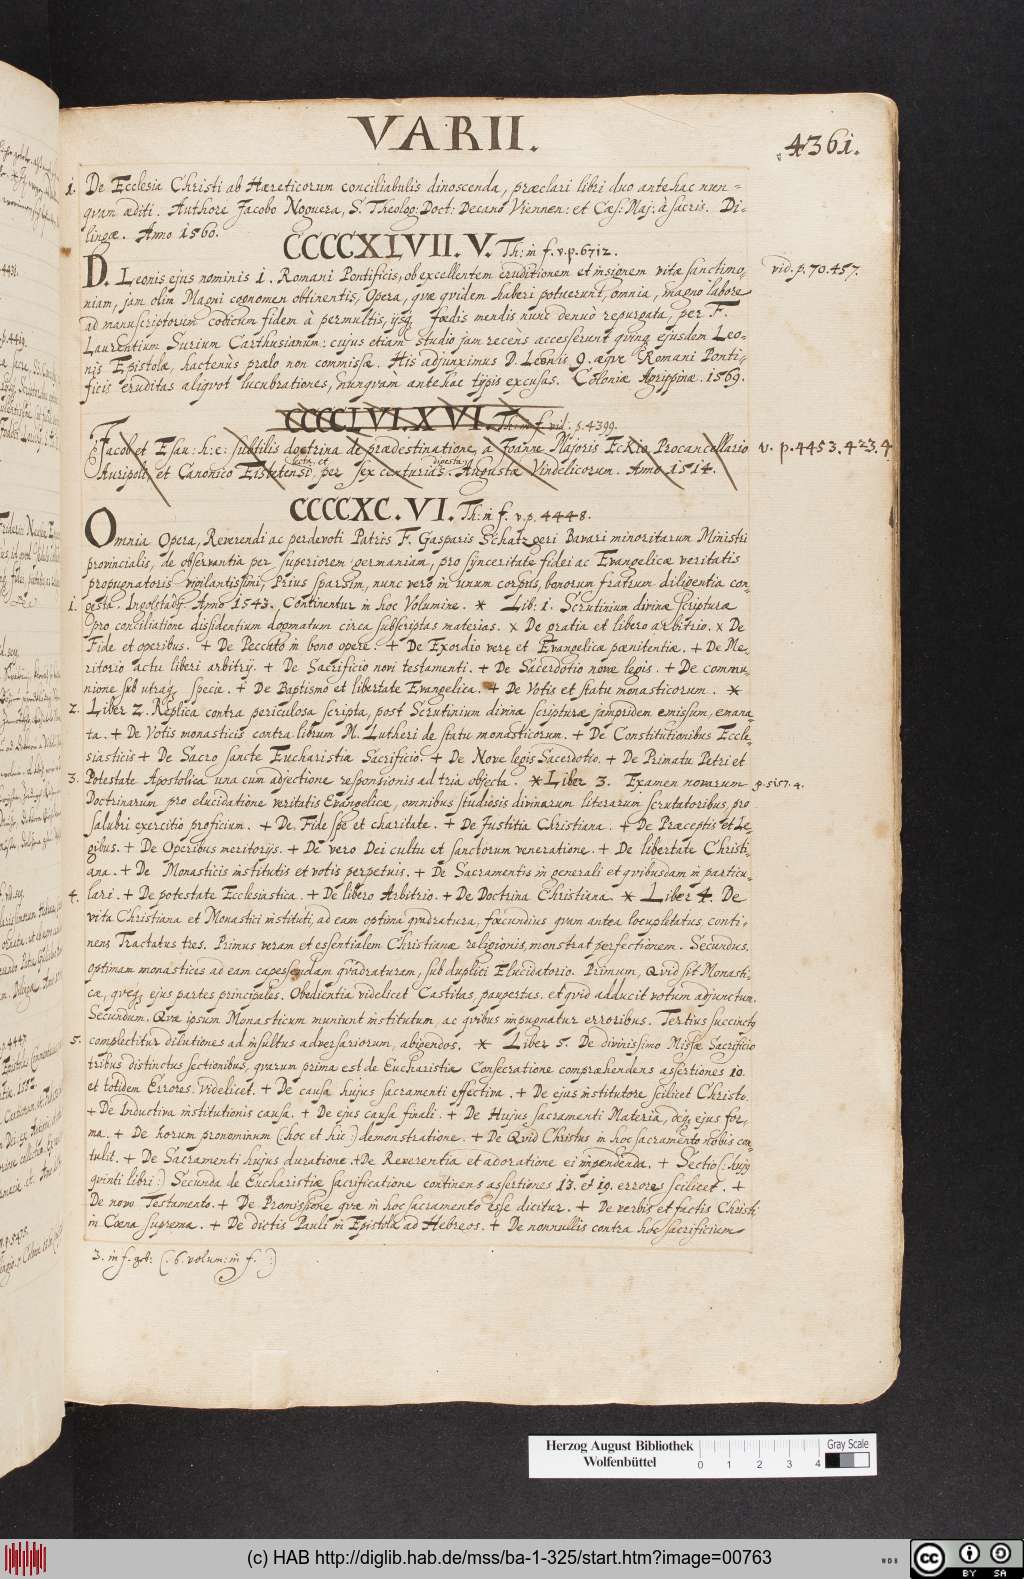 VARII.
4361.
1. De Ecclesia Christi ab Hæreticorum conciliabulis dinoscenda, præclari libri duo antehac nun=
qvam æditi. Authore Jacobo Noguera, S. Theolog: Doct: Decano Viennen: et Cæs: Maj: à sacris. Di-
lingæ. Anno 1560.
CCCCXLVII. V. Th: in f. v. p. 6712.
D. Leonis ejus nominis 1. Romani Pontificis, ob excellentem eruditionem et insignem vitæ sanctimo,
vid. p. 70.457.
niam, jam olim Magni cognomen obtinentis, Opera, qvæ qvidem haberi potuerunt, omnia, magno labore
ad manuscriptorum codicum fidem à permultis, ijsq fœdis mendis nunc denuò repurgata, per F.
Laurentium Surium Carthusianum: cujus etiam studio jam recèns accesserunt qvinq ejusdem Leo-
nis Epistolæ, hactenùs prælo non commissæ. His adjunximus D. Leonis 9. æqve Romani Ponti-
ficis eruditas aliqvot lucubrationes, nunqvam antehac typis excusas. Coloniæ Agrippinæ. 1569.
CCCCLVI. XVI. Th: in f. vid: s. 4399.
Jacob et Esau: h: e: subtilis doctrina de prædestinatione, a Joanne Majoris Eckio Procancellario
v. p. 4453. 423. 4
lecta, et digesta
Auripoli, et Canonico Eistetensi per sex centurias. Augustæ Vindelicorum. Anno 1514.
CCCCXC. VI. Th: in f. v. p. 4448.
Omnia Opera, Reverendi ac perdevoti Patris F. Gasparis Schatzgeri Bavari minoritarum Ministri
provincialis, de observantia per superiorem germaniam, pro synceritate fidei ac Evangelicæ veritatis
propugnatoris vigilantissimi, Prius sparsim, nunc vero in unum corpus, bonorum fratrum diligentia con
1. gesta. Ingolstadij Anno 1543. Continentur in hoc Volumine. * Lib: 1. Scrutinium divinæ scripturæ
pro conciliatione dissidentium dogmatum circa subscriptas materias. × De gratia et libero arbitrio. × De
Fide et operibus. + De Peccato in bono opere. + De Exordio veræ et Evangelicæ pœnitentiæ. + De Me-
ritorio actu liberi arbitrij. + De Sacrificio novi testamenti. + De Sacerdotio novæ legis. + De commu-
nione sub utraq specie. + De Baptismo et libertate Evangelica. + De Votis et statu monasticorum. *
2. Liber 2. Replica contra periculosa scripta, post Scrutinium divinæ scripturæ jampridem emissum, emana-
ta. + De Votis monasticis contra librum M. Lutheri de statu monasticorum. + De Constitutionibus Eccle-
siasticis + De Sacro sanctæ Eucharistiæ Sacrificio. + De Novæ legis Sacerdotio. + De Primatu Petri et
3. Potestate Apostolica una cum adjectione responsionis ad tria objecta. * Liber 3. Examen novarum
p. 5157. 4.
Doctrinarum pro elucidatione veritatis Evangelicæ, omnibus studiosis divinarum literarum scrutatoribus, pro
salubri exercitio proficium. + De Fide spe et charitate. + De Justitia Christiana. + De Præceptis et Le-
gibus. + De Operibus meritorijs. + De vero Dei cultu et sanctorum veneratione. + De libertate Christi-
ana. + De Monasticis institutis et votis perpetuis. + De Sacramentis in generali et qvibusdam in particu-
4. lari. + De potestate Ecclesiastica. + De libero Arbitrio. + De Doctrina Christiana * Liber 4. De
vita Christiana et Monastici instituti, ad eam optima qvadratura, fœcundius qvam antea locuplitatus, conti-
nens Tractatus tres. Primus veram et essentialem Christianæ religionis, monstrat perfectionem. Secundus,
optimam monastices ad eam capessendam qvadraturam, sub duplici Elucidatorio. Primum, Qvid sit Monasti-
cæ, qvæq ejus partes principales. Obedientia videlicet Castitas, paupertas. et qvid adducit votum adjunctum.
Secundum. Qvæ ipsum Monasticum muniunt institutum, ac qvibus impugnatur erroribus. Tertius succinctæ
5. complectitur dilutiones ad insultus adversariorum, abigendos. * Liber 5. De divinissimo Missæ Sacrificio
tribus distinctus sectionibus, qvarum prima est de Eucharistiæ Consecratione compræhendens assertiones 10.
et totidem Errores. Videlicet. + De causa hujus sacramenti effectiva. + De ejus institutore scilicet Christo.
+ De Inductiva institutionis causa. + De ejus causa finali. + De Hujus sacramenti Materia, deq ejus for,
ma. + De horum pronominum (: hoc et hic :) demonstratione. + De Qvid Christus in hoc sacramento nobis con
tulit. + De Sacramenti hujus duratione. + De Reverentia et adoratione ei impendenda. + Sectio (: hujq
qvinti libri :) Secunda de Eucharistiæ sacrificatione continens assertiones 13. et 19. errores scilicet. +
De novo Testamento. + De Promissione qvæ in hoc sacramento esse dicitur. + De verbis et factis Christi
in Cœna suprema. + De dictis Pauli in Epistola ad Hebræos. + De nonnullis contra hoc sacrificium
3. in f. (: 6. volum: in f. :)
Herzog August Bibliothek
Wolfenbüttel
0 1 2 3 4
Gray Scale
(c) HAB http://diglib.hab.de/mss/ba-1-325/start.htm?image=00763
WDB
CC BY SA